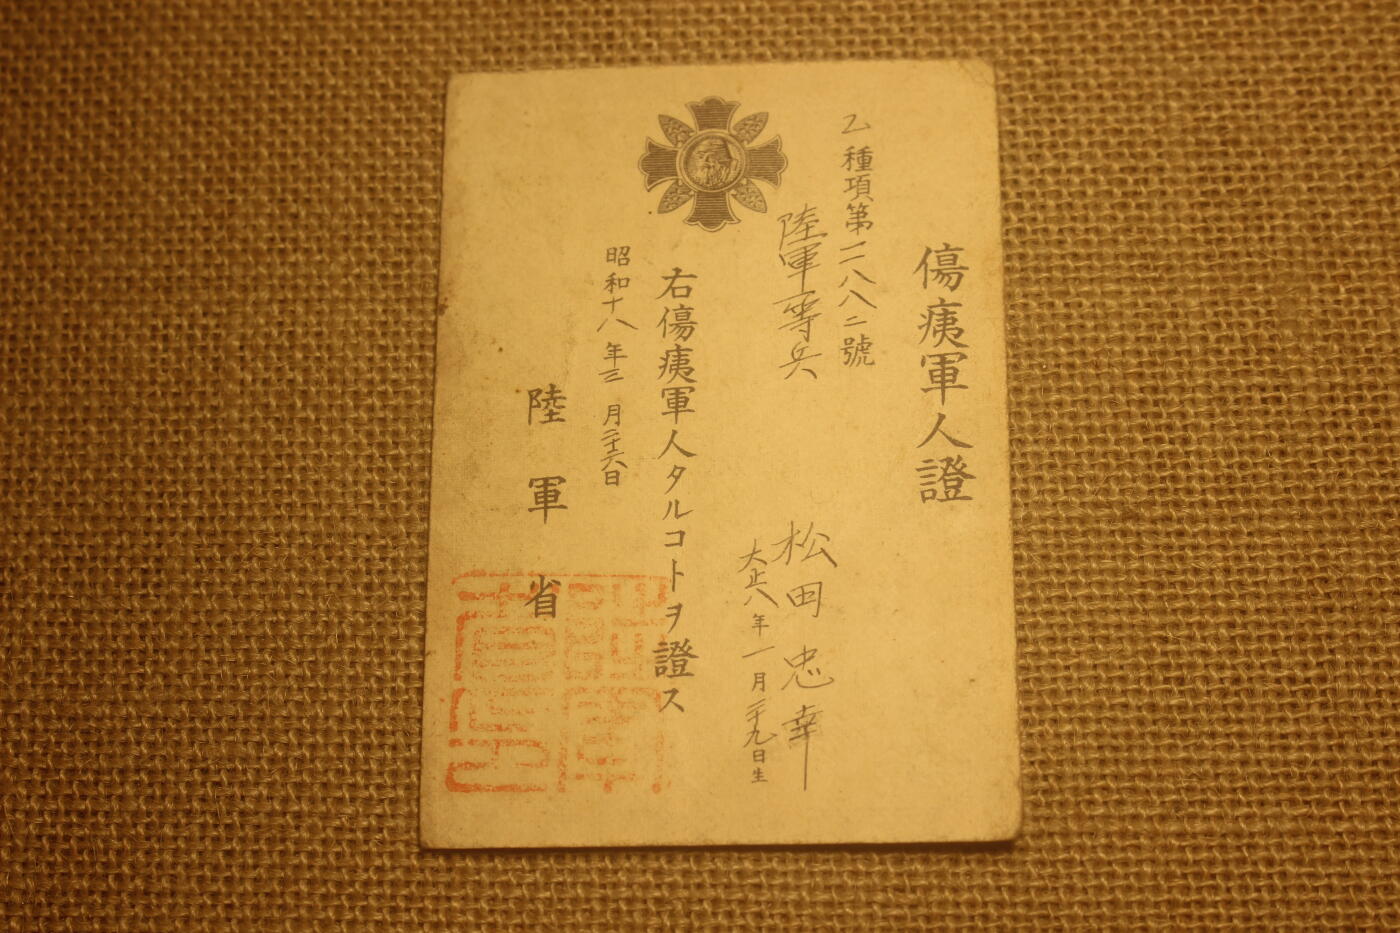 傷痍軍人證
乙種項第一二八八二號
陸軍一等兵
松田忠幸
大正八年一月二十九日生
右傷痍軍人タルコトヲ證ス
昭和十八年三月二十六日
陸軍省